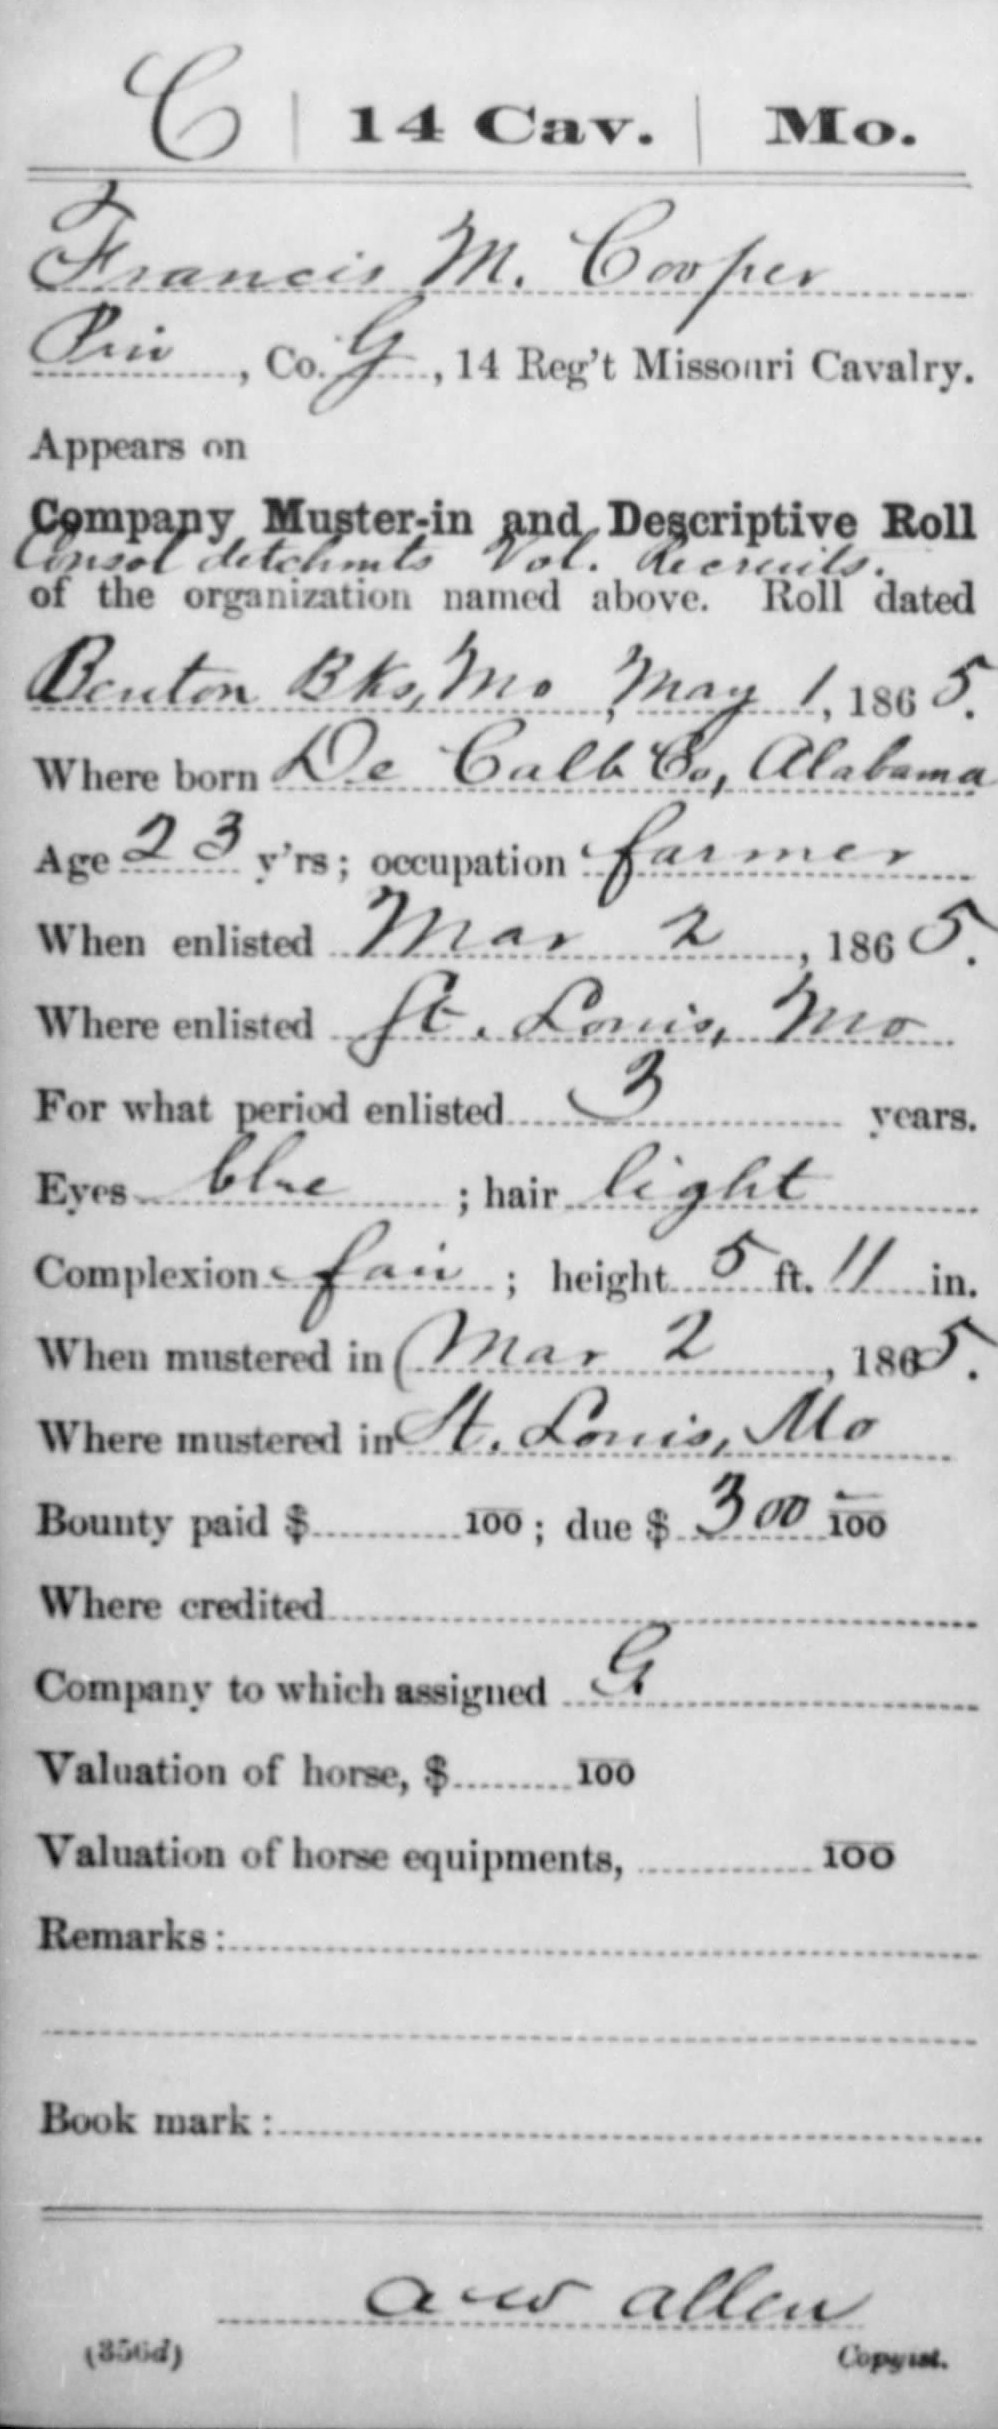 C | 14 Cav. | Mo.
Francis M. Cooper
Priv, Co. G, 14 Reg't Missouri Cavalry.
Appears on
Company Muster-in and Descriptive Roll
Consol detchmts Vol. Recruits.
of the organization named above. Roll dated
Benton Bks, Mo, May 1, 1865.
Where born De Calb Co, Alabama
Age 23 y'rs; occupation farmer
When enlisted Mar 2, 1865.
Where enlisted St. Louis, Mo
For what period enlisted 3 years.
Eyes blue; hair light
Complexion fair; height 5 ft. 11 in.
When mustered in Mar 2, 1865.
Where mustered in St. Louis, Mo
Bounty paid $ 100; due $ 300 100
Where credited
Company to which assigned G
Valuation of horse, $ 100
Valuation of horse equipments, 100
Remarks:
Book mark:
A W Allen
(356d) Copyist.